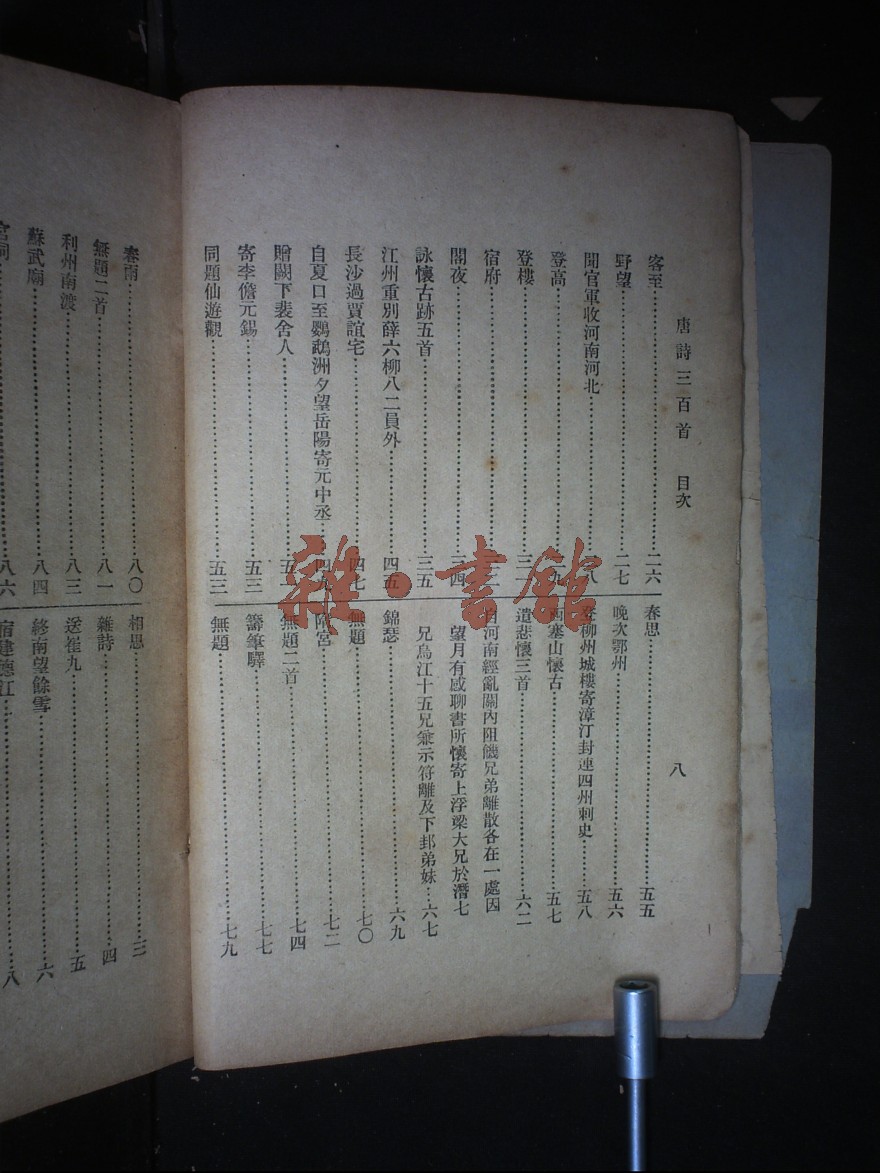 唐詩三百首 目次
八
客至……二六
野望……二七
聞官軍收河南河北……八
登高……九
登樓……三
宿府
閣夜……四
詠懷古跡五首……三五
江州重別薛六柳八二員外……四五
長沙過賈誼宅……四七
自夏口至鸚鵡洲夕望岳陽寄元中丞……四
贈闕下裴舍人……五
寄李儋元錫……五三
同題仙遊觀……五三
春思……五五
晚次鄂州……五六
登柳州城樓寄漳汀封連四州刺史……五八
西塞山懷古……五七
遣悲懷三首……六二
自河南經亂關內阻饑兄弟離散各在一處因
望月有感聊書所懷寄上浮梁大兄於潛七
兄烏江十五兄兼示符離及下邽弟妹…六七
錦瑟……六九
無題……七〇
隋宮……七二
無題二首……七四
籌筆驛……七七
無題……七九
春雨……八〇
無題二首……八一
利州南渡……八三
蘇武廟……八四
宮詞……八六
相思……三
雜詩……四
送崔九……五
終南望餘雪……六
宿建德江……八
雜·書館